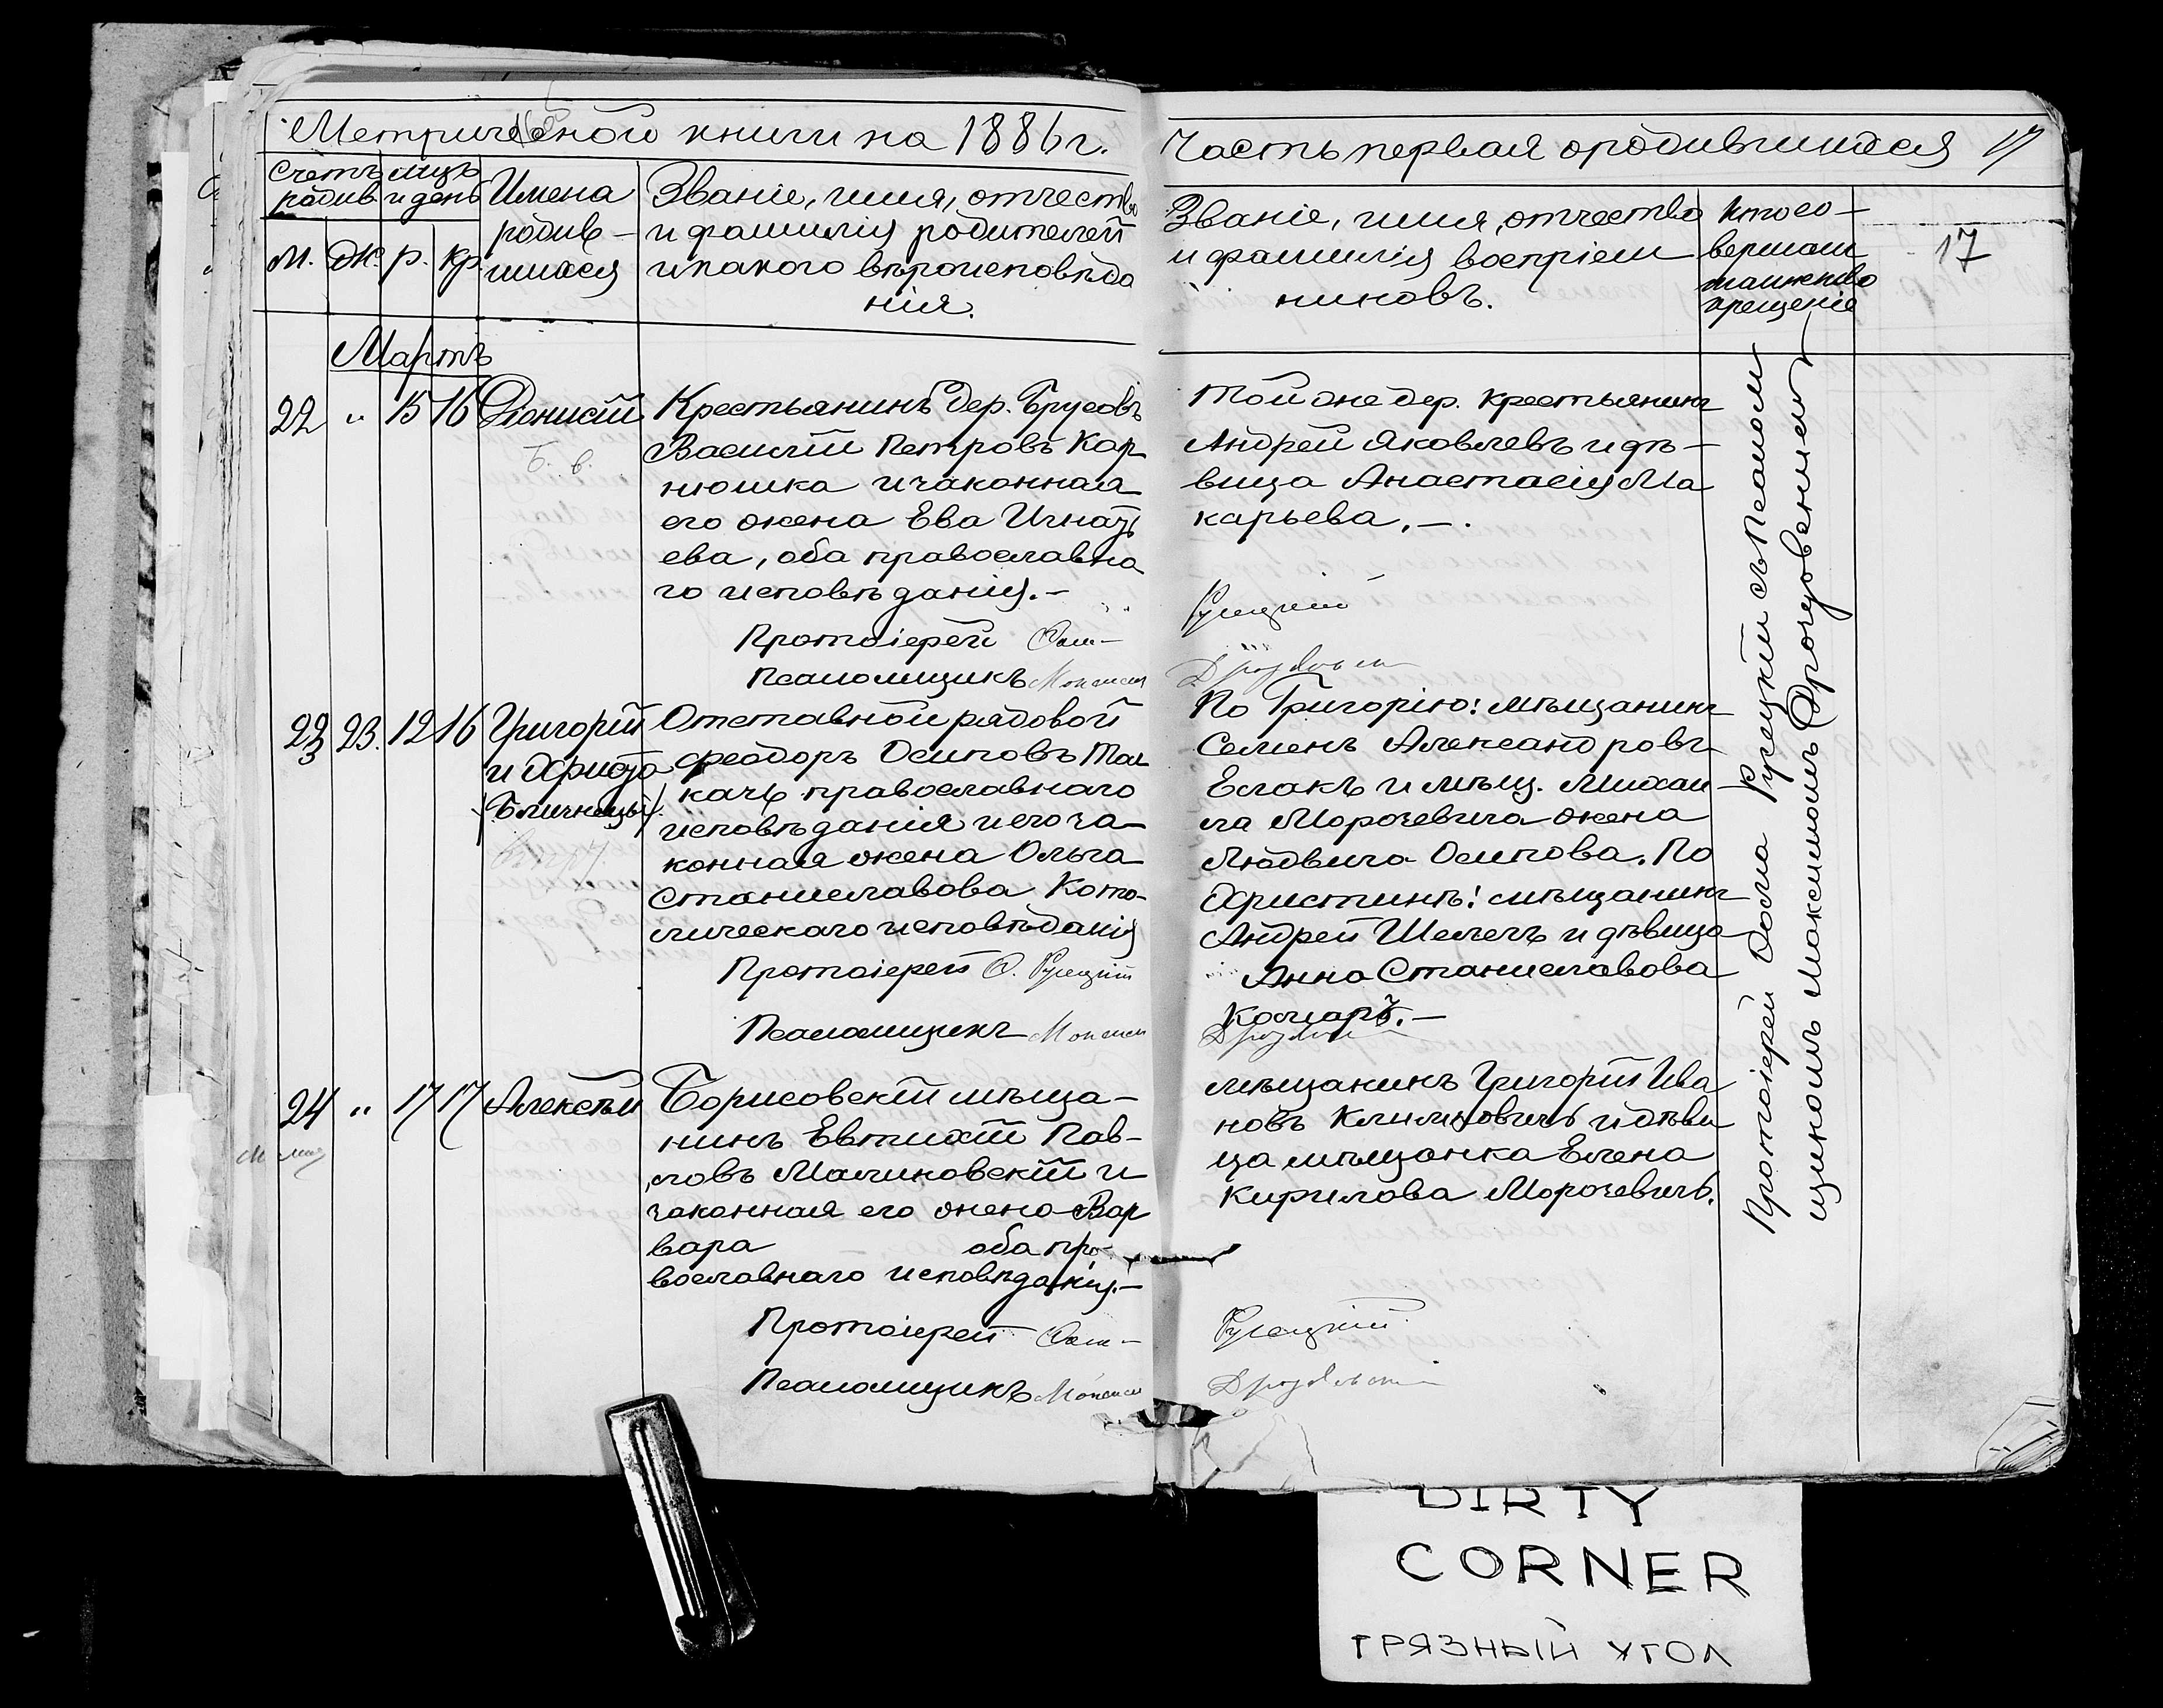 Метрической книги на 1886 г.
Часть первая о родившихся 17
Счетъ родив
мцъ и день
Имена родив-
шихся
Званіе, имя, отчество
и фамилія родителей
и какого вѣроисповѣда
нія.
Званіе, имя, отчество
и фамилія воспріем
никовъ.
Кто со-
вершал
таинство
крещенія
17
м. ж. р. кр.
Мартъ
22 " 15 16 Діонисій
Б. в.
Крестьянинъ дер. Брусовъ
Василій Петровъ Кор
нюшка и законная
его жена Ева Игнать
ева, оба православна
го исповѣданія.-
Протоіерей Ѳом-
Псаломщикъ Максим
Той же дер. крестьянинъ
Андрей Яковлевъ и дѣ-
вица Анастасія Ма
карьева.-.
Русецкій
23 23. 12 16 Григорій
и Христа
(Близнецы)
Отставной рядовой
Феодоръ Осиповъ Тал
качъ православнаго
исповѣданія и его за-
конная жена Ольга
Станиславова Като-
лическаго исповѣданія
Протоіерей Ѳ. Русецкій
Псаломщикъ Максим
По Григорію: мѣщанинъ
Семенъ Александровъ
Еслакъ и мѣщ. Михаи-
ла Морозевича жена
Людвига Осипова. По
Христинѣ: мѣщанинъ
Андрей Шелегъ и дѣвица
Анна Станиславова
24 " 17 17 Алексѣй
Борисовскій мѣща-
нинъ Евтихій Пав-
ловъ Малиновскій и
законная его жена Вар
вара оба пра-
вославнаго исповѣданія.-
Протоіерей Ѳом-
Псаломщикъ Максим
мѣщанинъ Григорій Ива
новъ Климковичъ и дѣви
ца мѣщанка Елена
Кирилова Морозевичъ.
Русецкій
Протоіерей Ѳома Русецкій съ Псалом
щикомъ Максимомъ Дроздовскимъ
DIRTY
CORNER
ГРЯЗНЫЙ УГОЛ